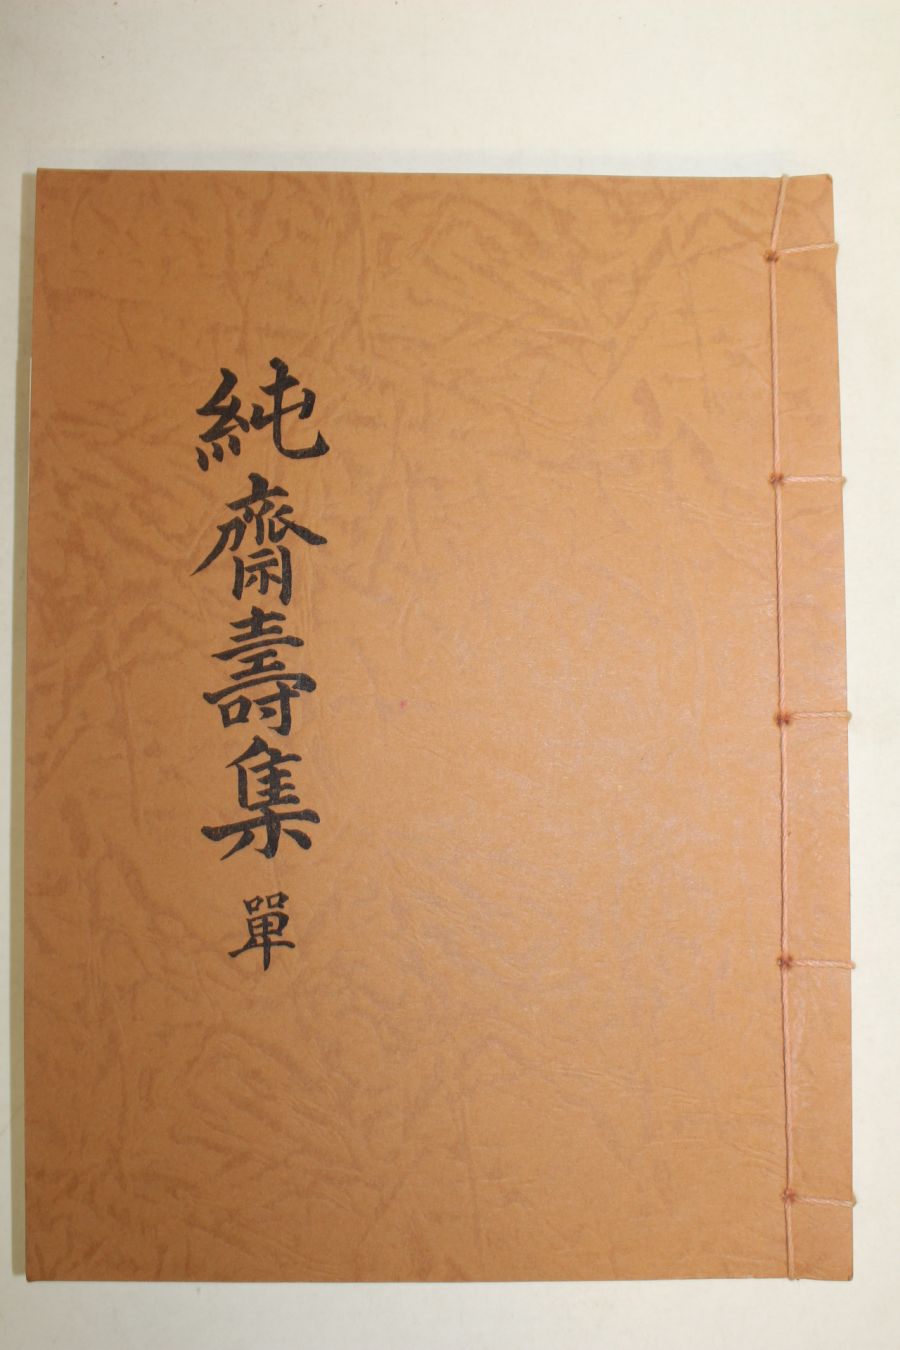 純齋壽集 單